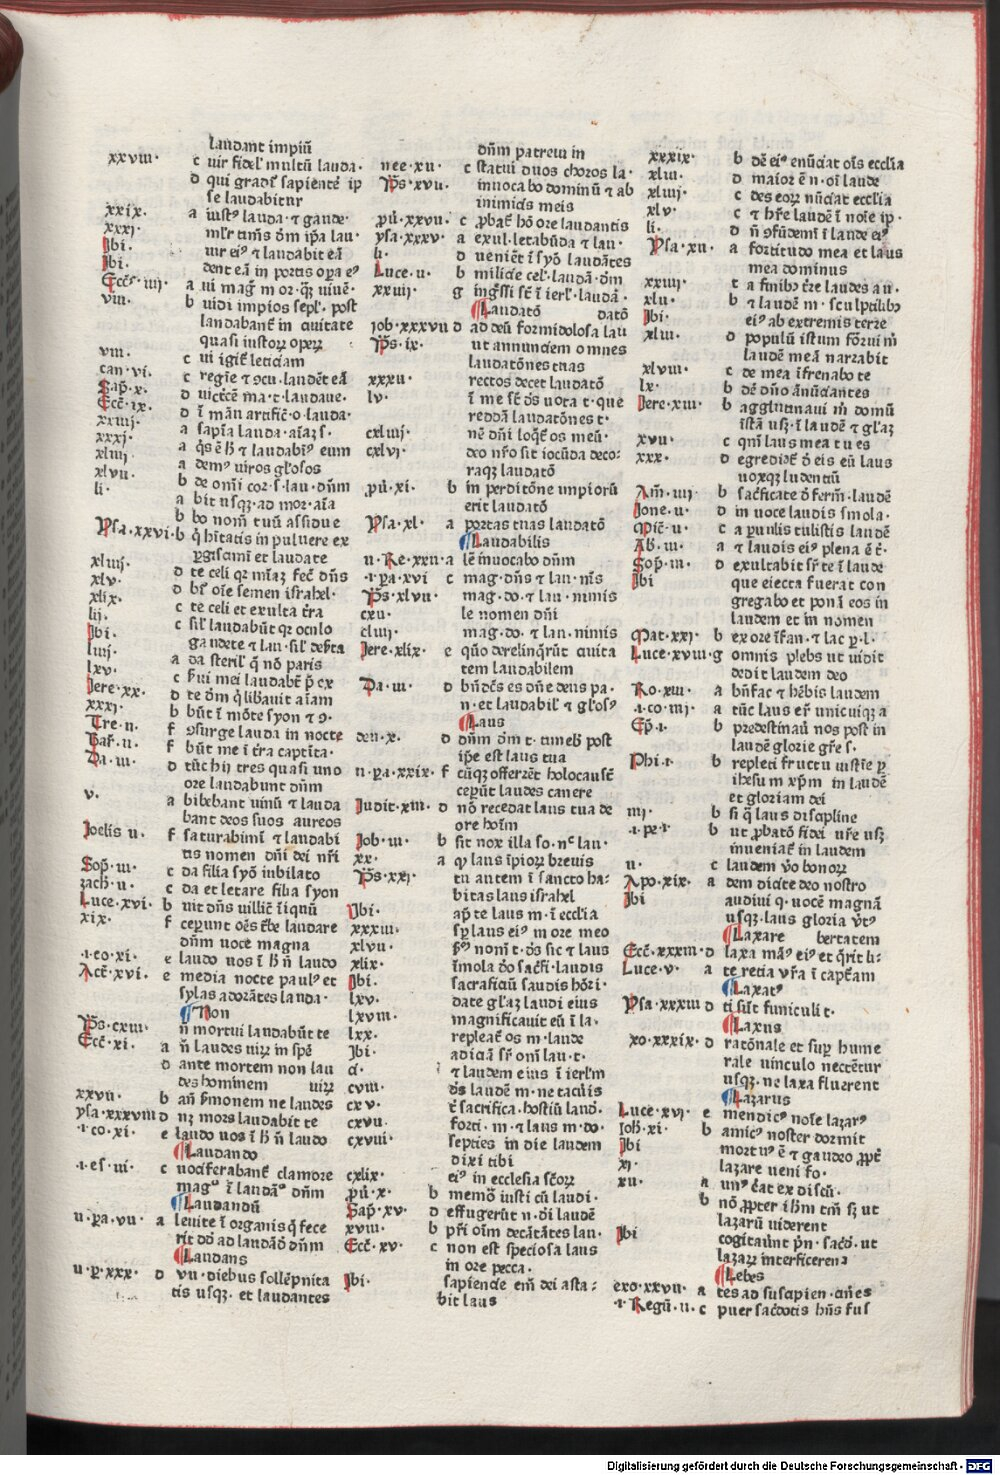 laudant impiū
xxviii· c uir fidel' multū lauda·
d qui gradr̄ sapientē ip
se laudabitur
xxix· a iustꝰ lauda·⁊ gaude·
xxxi· ml'r tim̄s dm̄ ip̄a lau·
Ibi· uir eiꝰ ⁊ laudabit eā
Ibi· dent eā in portis oꝑa eꝰ
Eccs̄· iiij· a ui maḡ mor·qȝ uiuē·
viii· b uidi impios sepl'· post
laudabant̄ in ciuitate
quasi iustoꝝ opeꝝ
viii· c ui igit̄ leticiam
can·vi· c regīe ⁊ ꝯcu·laudēt eā
Sap̄·x· d uictcē ma·t·laudaue·
Ecc̄·ix· d ī māu artific̄·o·lauda·
xxiiij· a sapīa lauda·aīaȝ s·
xxxi· a qs ē h̄ ⁊ laudabiꝰ eum
xliiij a demꝰ uiros gl'osos
xlvii· b de om̄i cor·s·lau·dn̄m
li· a bit usqȝ·ad mor·aīa
b bo nom̄ tuū assidue
Psa·xxvi·b q̇ hītatis in puluere ex
ꝑgiscimī et laudate
xliiij· d te celi qꝛ mīaȝ fec̄ dn̄s
xlv· d br̄ oīe semen israhel·
xlix· c te celi et exulta t̄ra
lij· c sil' laudabūt qꝛ oculo
Ibi· gaudete ⁊ lau·sil' deẜta
liiij· a da steril' q̇ nō paris
lxv· c ẜui mei laudabt̄ p̄ ex
Jere·xx· d te dm̄ q̇ libauit aīam
xxxi· b būt ī mōte syon ⁊ ꝯ·
Tre·ii· f ꝯsurge lauda in nocte
Bar̄·ii· f būt me ī t̄ra captīta·
Da·iii· d tūc hij tres quasi uno
ore laudabunt dn̄m
v· a bibebant uinū ⁊ lauda
bant deos suos aureos
Joelis ii· f saturabimī ⁊ laudabi
tis nomen dn̄i dei nr̄i
Sop̄·iii· c da filia syō iubilato
zach̄·ii· c da et letare filia syon
Luce·xvi· b uit dn̄s uillic̄ īiqnū
xix· f ceꝑunt oēs t̄be laudare
dn̄m uoce magna
·i·co·xi· e laudo uos ī h̄ n̄ laudo
Act̄·xvi· e media nocte paulꝰ et
sylas adorātes lauda·
Non
Ps̄·cxiii· n̄ mortui laudabūt te
Ecc̄·xi· a n̄ laudes uiꝝ in spē
d ante mortem non lau
des hominem uiꝝ
xxvii· b an̄ ẜmonem ne laudes
ysa·xxxviii d nꝫ mors laudabit te
·i·co·xi· e laudo uos ī h̄ n̄ laudo
Laudando
·i·es·iii· c uociferabant̄ clamore
magꝰ ī laudāꝰ dn̄m
Laudandū
ii·pa·vii· a leuite ī organis q̇ fece
rit dd̄ ad laudādō dn̄m
Laudans
ii·p·xxx· d vii·diebus sollēpnita
tis usqȝ·et laudantes
dn̄m patreni in
nee·xii· c statui duos choros la·
Ps̄·xvii· inuocabo dominū ⁊ ab
inimicis meis
pū·xxvii· c ꝓbat̄ hō ore laudantis
ysa·xxxv· a exul·letabūda ⁊ lau·
li· d ueniēt ī syō laudātes
Luce·ii· b milicie cel'·laudā·dm̄
xxiiij· g ing̊ssi st̄ ī ierl'·laudā·
Laudatō datō
iob·xxxvii d ad deū formidolosa lau
Ps̄·ix· ut annunciem omnes
laudatōnes tuas
xxxii· rectos decet laudatō
lv· ī me st̄ ds̄ uota t·que
reddā laudatōnes t·
cxliiij· nē dn̄i loq̄t̄ os meū·
cxlvi· deo nr̄o sit iocūda deco·
raqȝ laudatō
pū·xi· b in perditōne impiorū
erit laudatō
Psa·xl· a portas tuas laudatō
Laudabilis
ii·Re·xxii·a lē inuocabo dn̄m
·i·pa·xvi c mag·dn̄s ⁊ lau·nīs
Ps̄·xlvii· mag·do·⁊ lau·nimis
cxii· le nomen dn̄i
cliiij· mag·do·⁊ lau·nimis
Jere·xlix· e qūo derelinq̄rūt ciuita
tem laudabilem
Da·iii· d bn̄dcs̄ es dn̄e deus pa·
n·et laudabil' ⁊ gl'osꝰ
Laus
deu·x· d dn̄m dm̄ t·timeb̄ post
ip̄e est laus tua
ii·pa·xxix· f cūqȝ offerrēt holocaust̄
cepūt laudes canere
Judit·xiii· d nō recedat laus tua de
ore hoīm
Job·iii· b sit nox illa so·nᶜ lau·
xx· a qꝫ laus īpioꝝ breuis
Ps̄·xxi· tu autem ī sancto ha·
bitas laus israhel
Ibi· ap̄ te laus m·ī ecclīa
xxxiii· sꝑ laus eiꝰ in ore meo
xlvii· ẜꝰ nom̄ t·ds̄ sic ⁊ laus
xlix· īmola dō sac̄fi·laudis
Ibi· sacrificiū laudis hōri·
lxv· date gl'aȝ laudi eius
lxviii· magnificauit eū ī la·
lxx· repleat̄ os m·laude
Ibi· adiciā sr̄ om̄ lau·t·
c̄· ⁊ laudem eius ī ierl'm
cviii· ds̄ laudē m·ne tacu̇is
cxv· t̄ sacrifica·hostiū laud̄·
cxvii· forti·m·⁊ laus m·do·
cxviii· septies in die laudem
dixi tibi
cxlix· eiꝰ in ecclesia sc̄oꝝ
pū·x· b memō iusti cū laudi·
Sap̄·xv· d effugerūt n·dī laudē
xviii· b pr̄i oīm decātātes lau·
Ecc̄·xv· c non est speciosa laus
in ore pecca·
Ibi· sapiencie em̄ dei asta=
bit laus
xxxix· b dē eiꝰ enūciat oīs ecclīa
xlii· d maior ē n·oī laude
xliiij· c des eoꝝ nūciat ecclīa
xlv· c ⁊ bn̄e laudē ī noīe ip·
li· d n̄ ꝯfūdemī ī laude eiꝰ
Psa·xii· a fortitudo mea et laus
mea dominus
xxiiij· t a finibꝫ t̄re laudes au·
xlii· b ⁊ laudē m·sculptilibꝫ
Ibi· eiꝰ ab extremis terre
xliii· d populū istum fōrui m̄
laudē meā narrabit
xlviii· c de mea īfrenabo te
lx· b dē dn̄o ānūciantes
Jere·xiii· b agglutinaui m̄ domū
istā usqȝ·ī laudē ⁊ gl'aȝ
xvii· c qm̄ laus mea tu es
xxx· d egrediet̄ d̄ eis eū laus
uoxqȝ ludentiū
Am̄·iiij· b sac̄ficate d̄ ferm̄·laudē
Jone·ii· d in uoce laudis īmola·
Mic̄·ii· c a puulis tulistis laudē
Ab̄·iii· a ⁊ laudis eiꝰ plena ē t̄·
Sop̄·iii· d exultabit sr̄ te ī laude
Ibi que eiecta fuerat con
gregabo et ponā eos in
laudem et in nomen
Mat·xxi· b ex ore īfan·⁊ lac p·l·
Luce·xviii·g omnis plebs ut uidit
dedit laudem deo
Ro·xiii· a bn̄fac ⁊ hēbis laudem
·i·co·iiij· a tūc laus er̄ unicuiqȝ a
Ep̄·i· b predestinauī nos post in
laudē glorie gr̄e s·
Phi·i· b repleti fructu iustīe ꝑ
ihesum xp̄m in laudē
et gloriam dei
iiij· b si q̇ laus discipline
·i·pe·i· b ut ꝓbatō fidei ur̄e usȝ
inueniat̄ in laudem
ii· c laudem v̄o bonoꝝ
Apo·xix· a dem dicite deo nostro
Ibi audiui q·uocē magnā
usqȝ·laus gloria v̄tꝰ
Laxare bertatem
Ecc̄·xxxiii·d laxa māꝰ eiꝰ et q̄rit li:
Luce·v· a te retia vr̄a ī capt̄am
Laxatꝰ
Psa·xxxiii d ti sūt funiculi t·
Laxus
xo·xxxix· d ratōnale et suꝑ hume
rale uinculo necterētur
usqȝ·ne laxa fluerent
Lazarus
Luce·xvi· e mendicꝰ noīe lazarꝰ
Joh̄·xi· b amicꝰ noster dormit
Ibi mortuꝰ ē ⁊ gaudeo ꝓpt̄
xi· lazare ueni fo·
xii· a unꝰ ērat ex discū·
b nō ꝓpter ih̄m tm̄ sȝ ut
lazarū uiderent
Ibi cogitauīnt pn̄·sac̄d·ut
lazaꝝ interficerenꝫ
Lebes
exo·xxvii· a tes ad suscipien·cīn̄es
·i·Regū·ii·c puer sac̄dotis hn̄s fus
Digitalisierung gefördert durch die Deutsche Forschungsgemeinschaft - DFG